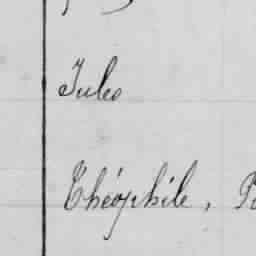 Jules
Théophile,